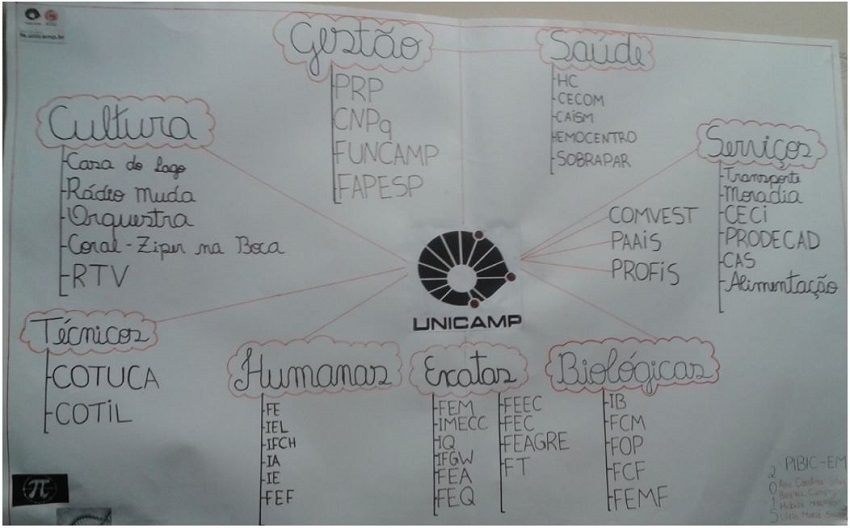 fe.unicamp.br
Gestão
PRP
CNPq
FUNCAMP
FAPESP
Saúde
HC
CECOM
CAiSM
EMOCENTRO
SOBRAPAR
Cultura
Casa do Lago
Rádio Muda
Orquestra
Coral - Ziper na Boca
RTV
Serviços
Transporte
Moradia
CECi
PRODECAD
CAS
Alimentação
COMVEST
PAAiS
PROFiS
UNICAMP
Técnicos
COTUCA
COTiL
Humanas
FE
IEL
IFCH
IA
IE
FEF
Exatas
FEM
IMECC
IQ
IFGW
FEA
FEQ
FEEC
FEC
FEAGRE
FT
Biológicas
IB
FCM
FOP
FCF
FEMF
π
PIBIC-EM
2
0
1
5